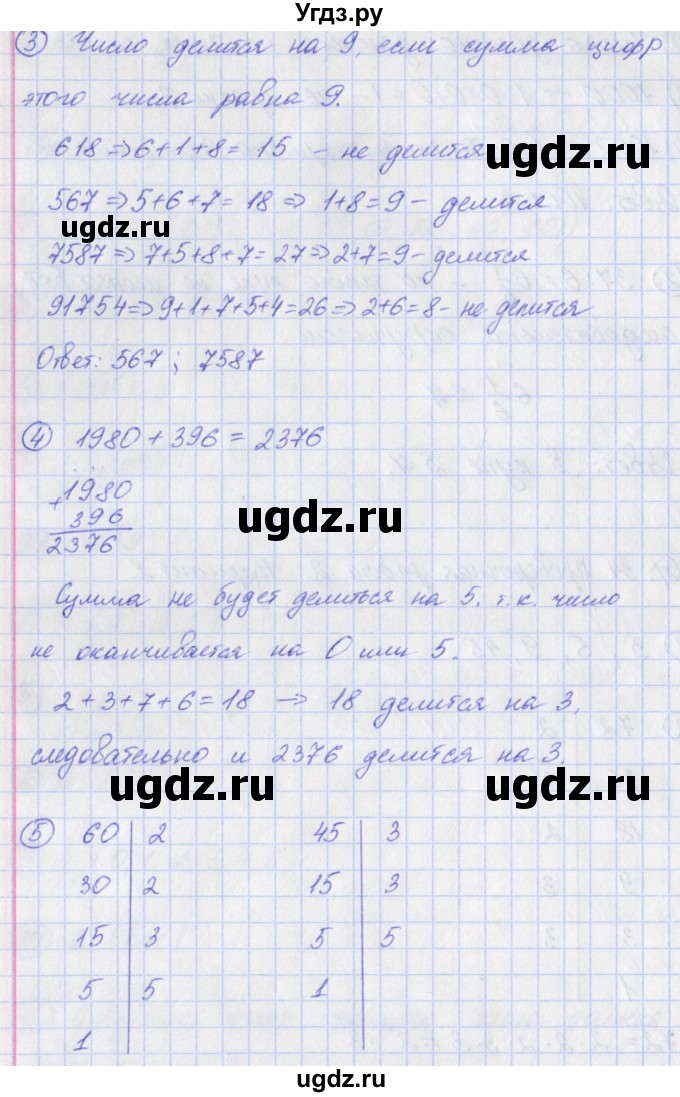 Угдз.ру
③ Число делится на 9, если сумма цифр
этого числа равна 9.
618 ⇒ 6+1+8= 15 - не делится
ugdz.ru
567 ⇒ 5+6+7= 18 ⇒ 1+8=9 - делится
ugdz.ru
7587 ⇒ 7+5+8+7= 27 ⇒ 2+7=9 - делится
91754 ⇒ 9+1+7+5+4=26 ⇒ 2+6=8 - не делится
Ответ: 567 ; 7587
ugdz.ru
④ 1980 + 396 = 2376
+ 1980
396
ugdz.ru
2376
Сумма не будет делиться на 5. т.к. число
не оканчивается на 0 или 5.
2+3+7+6=18 → 18 делится на 3,
следовательно и 2376 делится на 3.
ugdz.ru ugdz.ru
⑤ 60 | 2 45 | 3
30 | 2 15 | 3
15 | 3 5 | 5
5 | 5 1
1
ugdz.ru